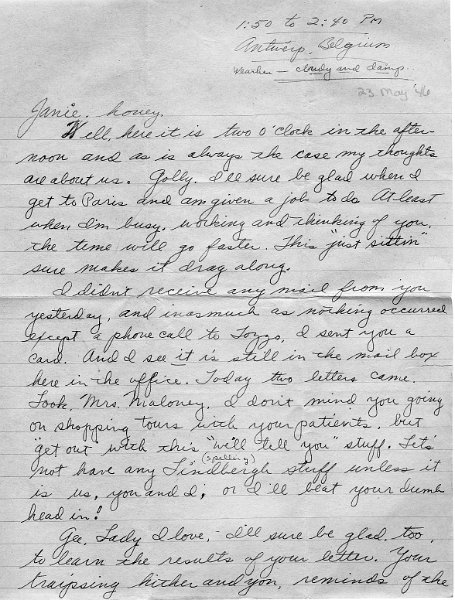 1:50 to 2:40 PM
Antwerp, Belgium
Weather — cloudy and damp...
23 May '46
Janie, honey,
Well, here it is two o'clock in the after-
noon and as is always the case my thoughts
are about us. Golly, I'll sure be glad when I
get to Paris and am given a job to do. At least
when I'm busy, working and thinking of you,
the time will go faster. This "just sittin"
sure makes it drag along.
I didn't receive any mail from you
yesterday, and inasmuch as nothing occurred
except a phone call to Fozzo, I sent you a
card. And I see it is still in the mail box
here in the office. Today two letters came.
Look, Mrs. Maloney, I don't mind you going
on shopping tours with your patients, but
"get out" with this "we'll tell you" stuff. Let's
(spelling)
not have any Lindbergh stuff unless it
is us, you and I, or I'll beat your dumb
head in!
Gee, Lady I love, - I'll sure be glad, too,
to learn the results of your letter. Your
traipsing hither and yon, reminds of the